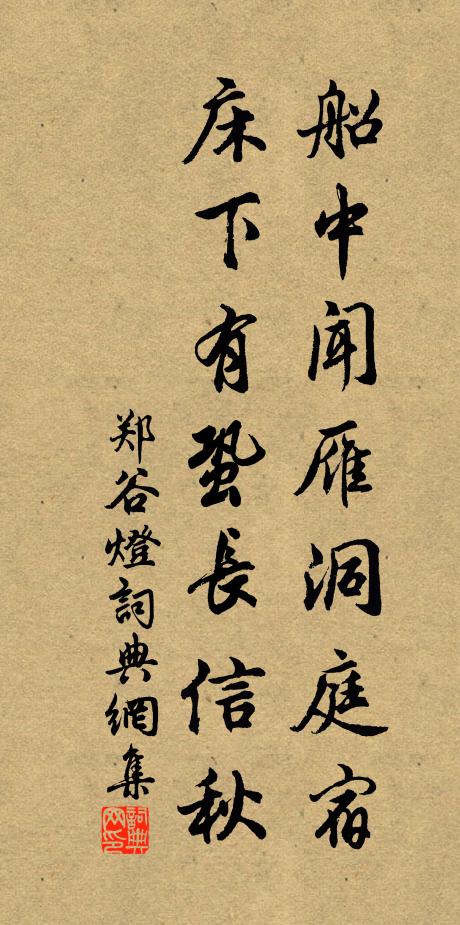 船中闻雁洞庭宿
床下有蛩長信秋
郑谷燈詞典網集
詞典网印